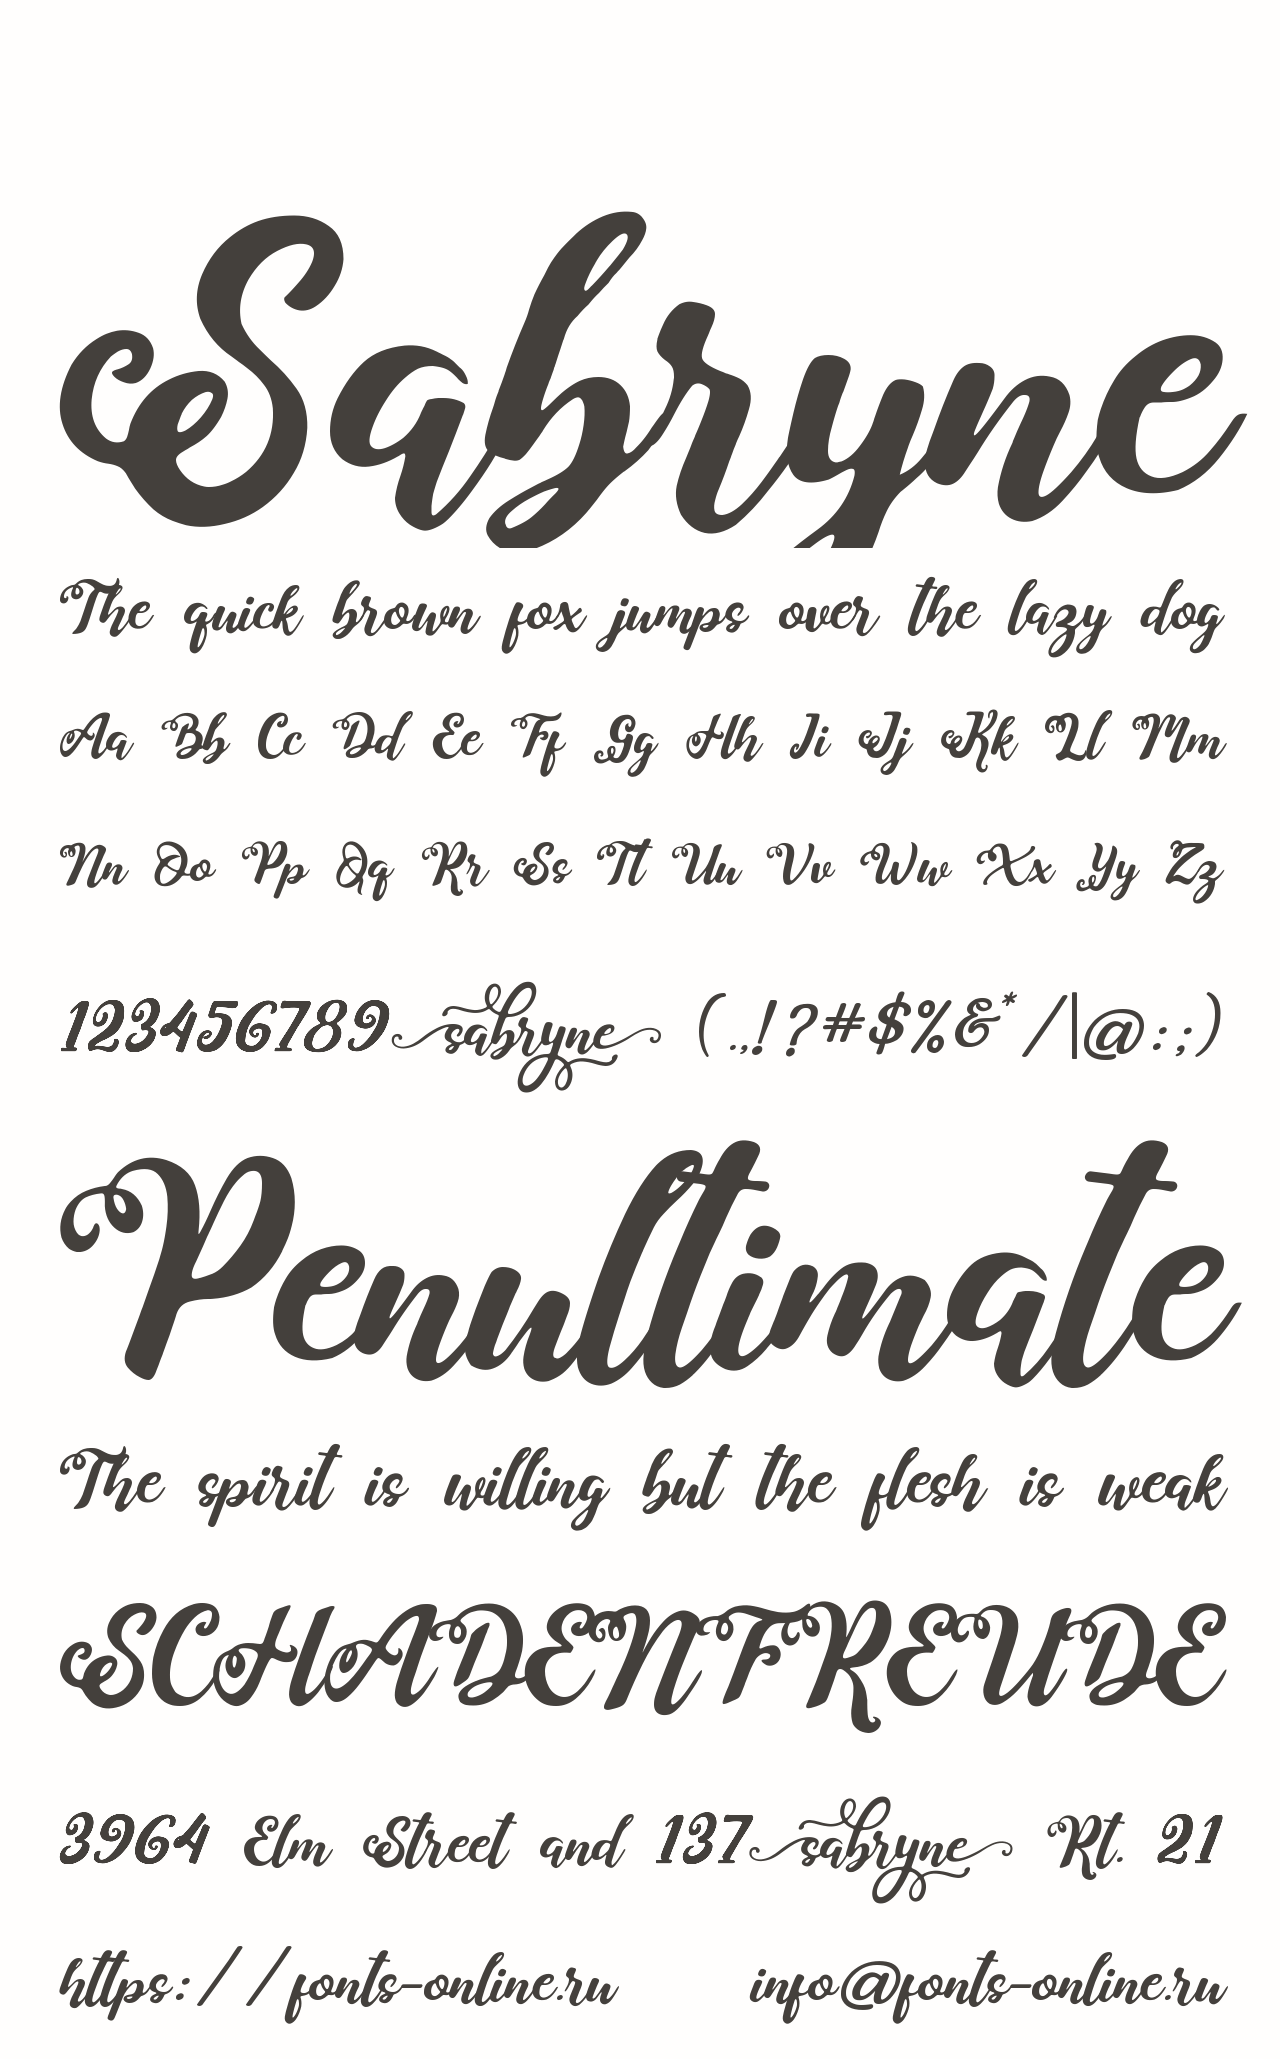 Sabryne
The quick brown fox jumps over the lazy dog
Aa Bb Cc Dd Ee Ff Gg Hh Ii Jj Kk Ll Mm
Nn Oo Pp Qq Rr Ss Tt Uu Vv Ww Xx Yy Zz
123456789 sabryne (.,!?#$%&*/|@:;)
Penultimate
The spirit is willing but the flesh is weak
SCHADENFREUDE
3964 Elm Street and 137 sabryne Rt. 21
https://fonts-online.ru info@fonts-online.ru